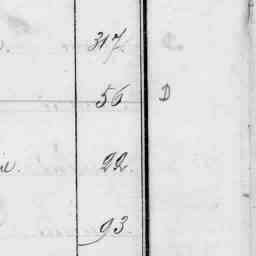 317.
56 D
22.
93.